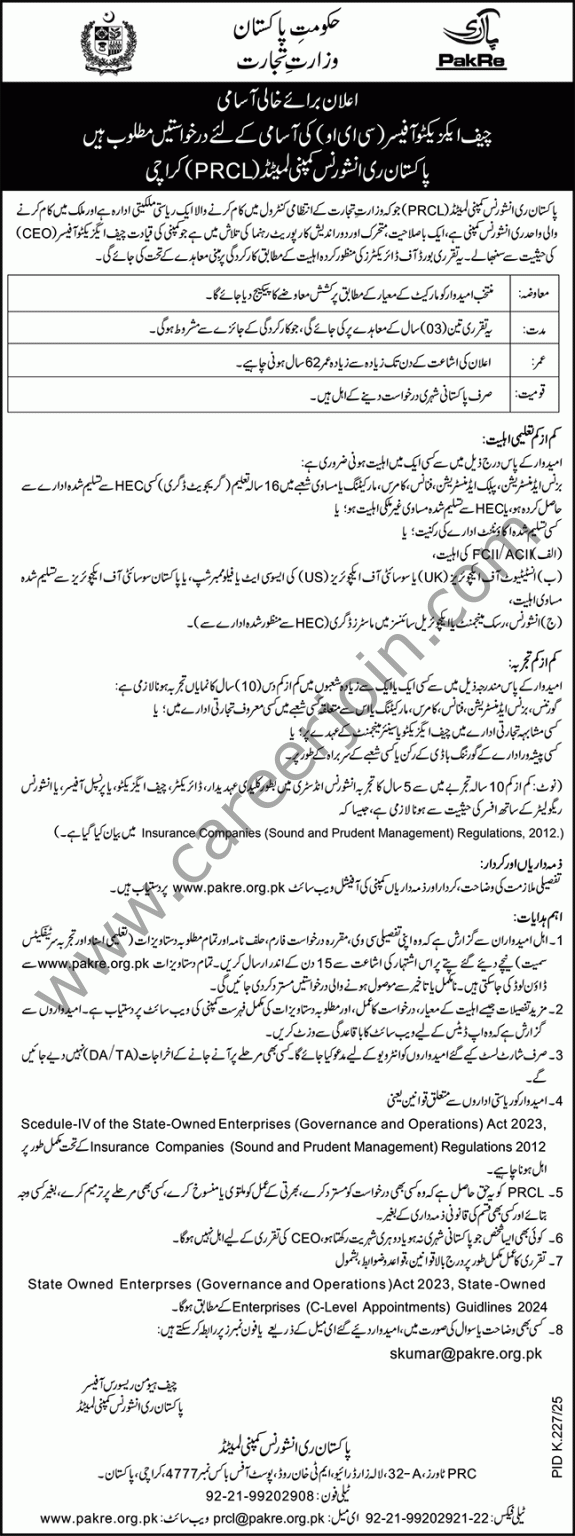 حکومتِ پاکستان
وزارتِ تجارت
پاکری
PakRe
اعلان برائے خالی آسامی
چیف ایگزیکٹو آفیسر (سی ای او) کی آسامی کے لئے درخواستیں مطلوب ہیں
پاکستان ری انشورنس کمپنی لمیٹڈ (PRCL) کراچی
پاکستان ری انشورنس کمپنی لمیٹڈ (PRCL) جو کہ وزارتِ تجارت کے انتظامی کنٹرول میں کام کرنے والا ایک ریاستی ملکیتی ادارہ ہے اور ملک میں کام کرنے
والی واحد ری انشورنس کمپنی ہے، ایک باصلاحیت، متحرک اور دور اندیش کارپوریٹ رہنما کی تلاش میں ہے جو کمپنی کی قیادت چیف ایگزیکٹو آفیسر (CEO)
کی حیثیت سے سنبھالے۔ یہ تقرری بورڈ آف ڈائریکٹرز کی منظور کردہ اہلیت کے مطابق کارکردگی پر مبنی معاہدے کے تحت کی جائے گی۔
معاوضہ: منتخب امیدوار کو مارکیٹ کے معیار کے مطابق پرکشش معاوضے کا پیکیج دیا جائے گا۔
مدت: یہ تقرری تین (03) سال کے معاہدے پر کی جائے گی، جو کارکردگی کے جائزے سے مشروط ہوگی۔
عمر: اعلان کی اشاعت کے دن تک زیادہ سے زیادہ عمر 62 سال ہونی چاہیے۔
قومیت: صرف پاکستانی شہری درخواست دینے کے اہل ہیں۔
کم از کم تعلیمی اہلیت:
امیدوار کے پاس درج ذیل میں سے کسی ایک میں اہلیت ہونی ضروری ہے:
بزنس ایڈمنسٹریشن، پبلک ایڈمنسٹریشن، فنانس، کامرس، مارکیٹنگ یا مساوی شعبے میں 16 سالہ تعلیم (گریجویٹ ڈگری) کسی HEC سے تسلیم شدہ ادارے سے
حاصل کردہ ہو، یا HEC سے تسلیم شدہ مساوی غیر ملکی اہلیت ہو؛ یا
کسی تسلیم شدہ اکاؤنٹنٹ ادارے کی رکنیت؛ یا
(الف) FCII/ACII کی اہلیت،
(ب) انسٹیٹیوٹ آف ایکچوئریز (UK) یا سوسائٹی آف ایکچوئریز (US) کی ایسوسی ایٹ یا فیلو ممبر شپ، یا پاکستان سوسائٹی آف ایکچوئریز سے تسلیم شدہ
مساوی اہلیت،
(ج) انشورنس، رسک مینجمنٹ یا ایکچوئریل سائنسز میں ماسٹرز ڈگری (HEC سے منظور شدہ ادارے سے)۔
کم از کم تجربہ:
امیدوار کے پاس مندرجہ ذیل میں سے کسی ایک یا ایک سے زیادہ شعبوں میں کم از کم دس (10) سال کا نمایاں تجربہ ہونا لازمی ہے:
گورننس، بزنس ایڈمنسٹریشن، فنانس، کامرس، مارکیٹنگ یا اس سے متعلقہ کسی شعبے میں کسی معروف تجارتی ادارے میں؛ یا
کسی مشابہہ تجارتی ادارے میں چیف ایگزیکٹو یا سینئر مینجمنٹ کے عہدے پر؛ یا
کسی پیشہ ور ادارے کے گورننگ باڈی کے رکن یا کسی شعبے کے سربراہ کے طور پر۔
(نوٹ: کم از کم 10 سالہ تجربے میں سے 5 سال کا تجربہ انشورنس انڈسٹری میں بطور کلیدی عہدیدار، ڈائریکٹر، چیف ایگزیکٹو، یا پرنسپل آفیسر، یا انشورنس
ریگولیٹر کے ساتھ افسر کی حیثیت سے ہونا لازمی ہے، جیسا کہ
Insurance Companies (Sound and Prudent Management) Regulations, 2012.) میں بیان کیا گیا ہے۔)
ذمہ داریاں اور کردار:
تفصیلی ملازمت کی وضاحت، کردار اور ذمہ داریاں کمپنی کی آفیشل ویب سائٹ www.pakre.org.pk پر دستیاب ہیں۔
اہم ہدایات:
1۔ اہل امیدواران سے گزارش ہے کہ وہ اپنی تفصیلی سی وی، مقررہ درخواست فارم، حلف نامہ اور تمام مطلوبہ دستاویزات (تعلیمی اسناد اور تجربہ سرٹیفکیٹس
سمیت) نیچے دیئے گئے پتے پر اس اشتہار کی اشاعت سے 15 دن کے اندر ارسال کریں۔ تمام دستاویزات www.pakre.org.pk سے
ڈاؤن لوڈ کی جاسکتی ہیں۔ نامکمل یا تاخیر سے موصول ہونے والی درخواستیں مسترد کر دی جائیں گی۔
2۔ مزید تفصیلات جیسے اہلیت کے معیار، درخواست کا عمل، اور مطلوبہ دستاویزات کی مکمل فہرست کمپنی کی ویب سائٹ پر دستیاب ہے۔ امیدواروں سے
گزارش ہے کہ وہ اپ ڈیٹس کے لیے ویب سائٹ کا باقاعدگی سے وزٹ کریں۔
3۔ صرف شارٹ لسٹ کیے گئے امیدواروں کو انٹرویو کے لیے مدعو کیا جائے گا۔ کسی بھی مرحلے پر آنے جانے کے اخراجات (DA/TA) نہیں دیے جائیں
گے۔
4۔ امیدوار کو ریاستی اداروں سے متعلق قوانین یعنی
Scedule-IV of the State-Owned Enterprises (Governance and Operations) Act 2023,
Insurance Companies (Sound and Prudent Management) Regulations 2012 کے تحت مکمل طور پر
اہل ہونا چاہیے۔
5۔ PRCL کو یہ حق حاصل ہے کہ وہ کسی بھی درخواست کو مسترد کرے، بھرتی کے عمل کو ملتوی یا منسوخ کرے، کسی بھی مرحلے پر ترمیم کرے، بغیر کسی وجہ
بتائے اور کسی بھی قسم کی قانونی ذمہ داری کے بغیر۔
6۔ کوئی بھی ایسا شخص جو پاکستانی شہری نہ ہو یا دوہری شہریت رکھتا ہو، CEO کی تقرری کے لیے اہل نہیں ہوگا۔
7۔ تقرری کا عمل مکمل طور پر درج بالا قوانین، قواعد و ضوابط، بشمول
State Owned Enterprses (Governance and Operations)Act 2023, State-Owned
Enterprises (C-Level Appointments) Guidlines 2024 کے مطابق ہوگا۔
8۔ کسی بھی وضاحت یا سوال کی صورت میں، امیدوار دیئے گئے ای میل کے ذریعے یا فون نمبرز پر رابطہ کرسکتے ہیں:
skumar@pakre.org.pk
چیف ہیومن ریسورس آفیسر
پاکستان ری انشورنس کمپنی لمیٹڈ
پاکستان ری انشورنس کمپنی لمیٹڈ
PRC ٹاورز، 32-A، لالہ زار ڈرائیو، ایم ٹی خان روڈ، پوسٹ آفس باکس نمبر 4777، کراچی، پاکستان۔
ٹیلی فون: 92-21-99202908
ٹیلی فیکس: 92-21-99202921-22 ای میل: prcl@pakre.org.pk ویب سائٹ: www.pakre.org.pk
PID K.227/25
www.careerjoin.com